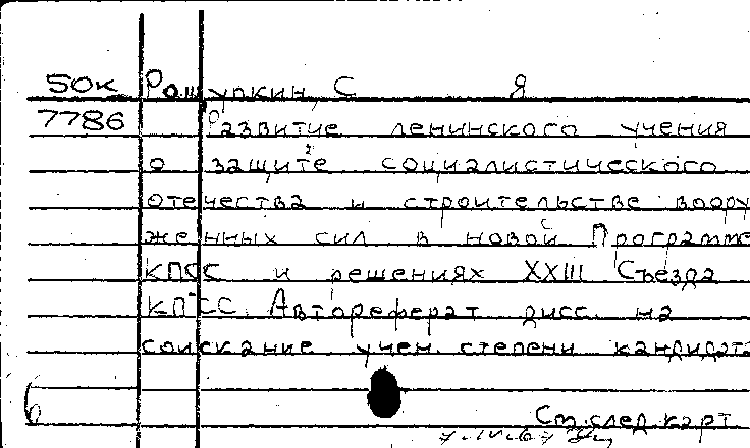 50к Рощупкин, С Я
7786 Развитие ленинского учения
о защите социалистического
отечества и строительстве воору
женных сил в новой Программе
КПСС и решениях XXIII Съезда
КПСС. Автореферат дисс. на
соискание учен. степени кандидата
См. след. карт.